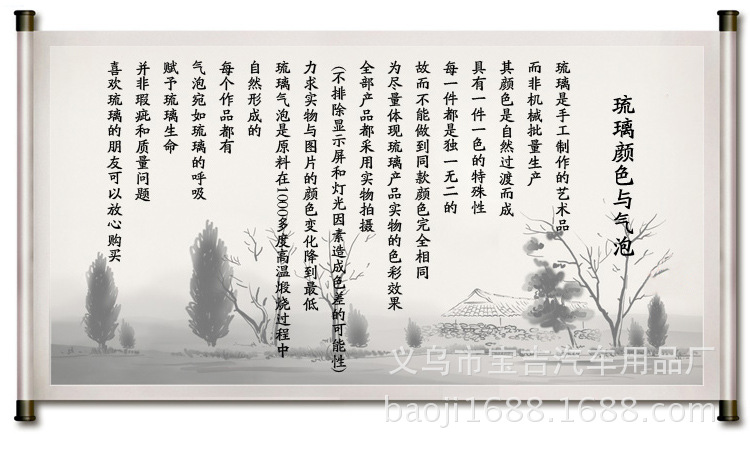 琉璃颜色与气泡
琉璃是手工制作的艺术品
而非机械批量生产
其颜色是自然过渡而成
具有一件一色的特殊性
每一件都是独一无二的
故而不能做到同款颜色完全相同
为尽量体现琉璃产品实物的色彩效果
全部产品都采用实物拍摄
(不排除显示屏和灯光因素造成色差的可能性)
力求实物与图片的颜色变化降到最低
琉璃气泡是原料在1000多度高温煅烧过程中
自然形成的
每个作品都有
气泡宛如琉璃的呼吸
赋予琉璃生命
并非瑕疵和质量问题
喜欢琉璃的朋友可以放心购买
义乌市宝吉汽车用品厂
baoji1688.1688.com